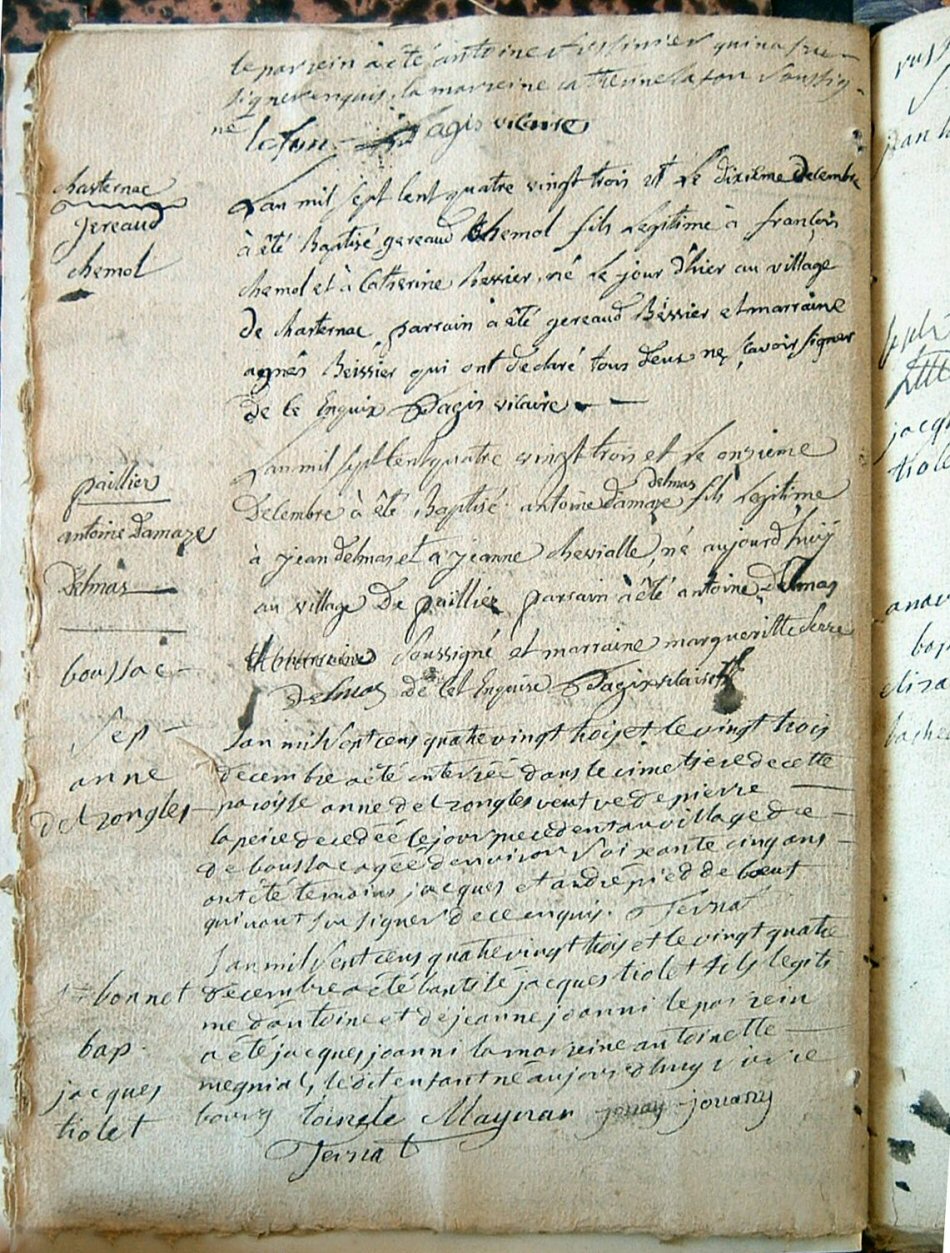 le parrein a été antoine qui na sceu
signer enquis, la marreine catherine lafon soussig-
né lafon Pagis vicaire
Chasternac
Gereaud
chemol
L'an mil sept cent quatre vingt trois et le dixieme Decembre
à été Baptisé gereaud Chemol fils Legitime à françois
chemol et à Catherine Bessier, né le jour d'hier au village
de Chasternac, parrain à été gereaud Béssier et marraine
agnés Beissier qui ont déclaré tous deux ne sçavoir signer
de ce Enquix Pagis vicaire
paillier
antoine Damaze
Delmas
L'an mil sept cent quatre vingt trois et le onzieme
Decembre à été Baptisé antoine Damaze delmas fils Legitime
à jean delmas et a jeanne chevialle, né aujourd'huÿ
au village De paillier parrain à été antoine Delmas
soussigné et marraine margueritte Serre
Delmas de Cet Enquise Pagix vicaire
boussac
Sep
anne
delzongles
Lan mil sept cens quatre vingt trois et le vingt trois
decembre a été enterréé dans le cimetiere de cette
paroisse anne delzongles veuve de pierre
lapeire decedéé le jour precedent au village de
de boussac agéé denviron soixante cinq ans
ont été temoins jacques et andre pied de bœuf
qui nont su signer de ce enquis. Ternat
st bonnet
bap.
jacques
tiolet
Lan mil sept cens quatre vingt trois et le vingt quatre
decembre a été batisé jacques tiolet fils legiti
me dantoine et de jeanne joanni le parrein
a été jacques joanni la marreine antoinette
megnial, ledit enfant né aujourdhuy
bourg toinete Maynar jouany
Ternat